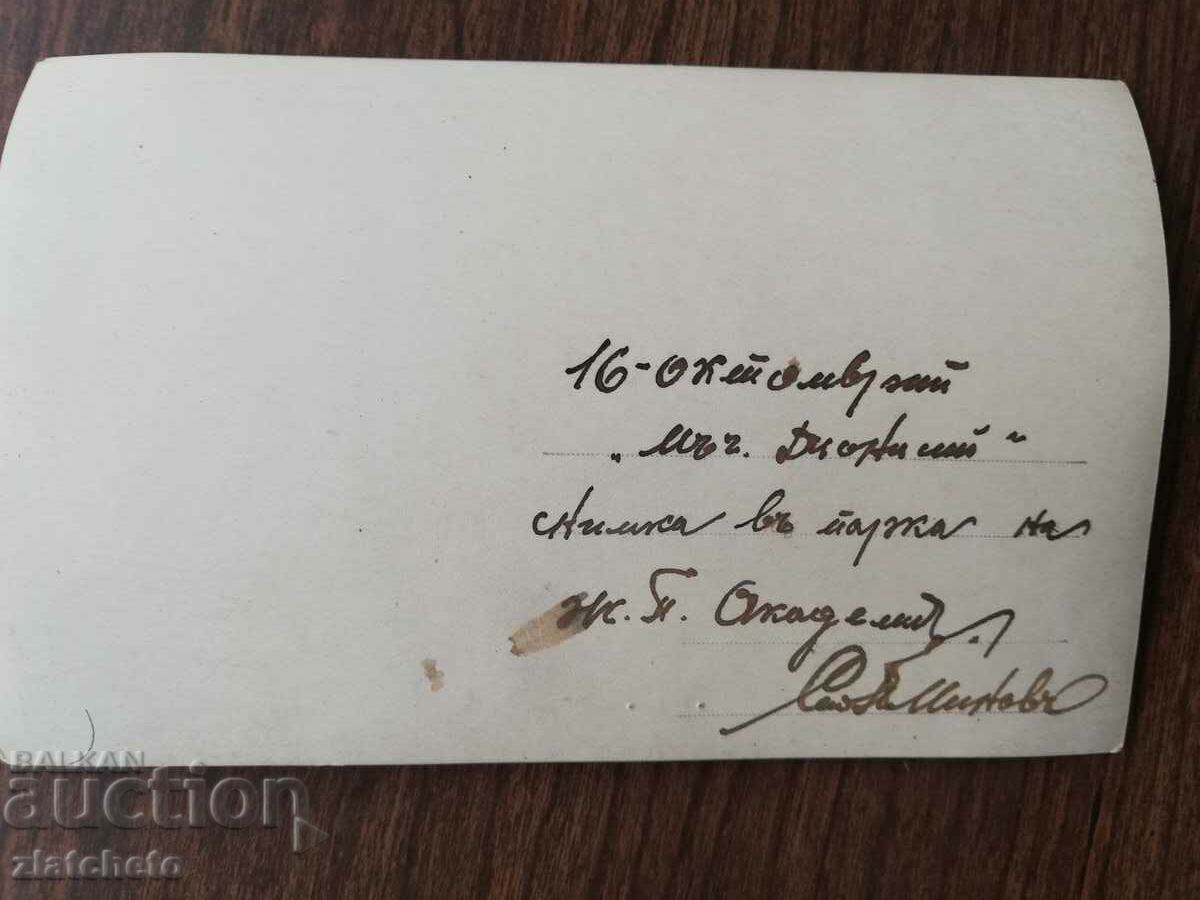 16-октомврий
„Мъч. Дионисий“
снимка въ парка на
Ж.П. Академия
Миновъ
BALKAN
auction
zlatcheto